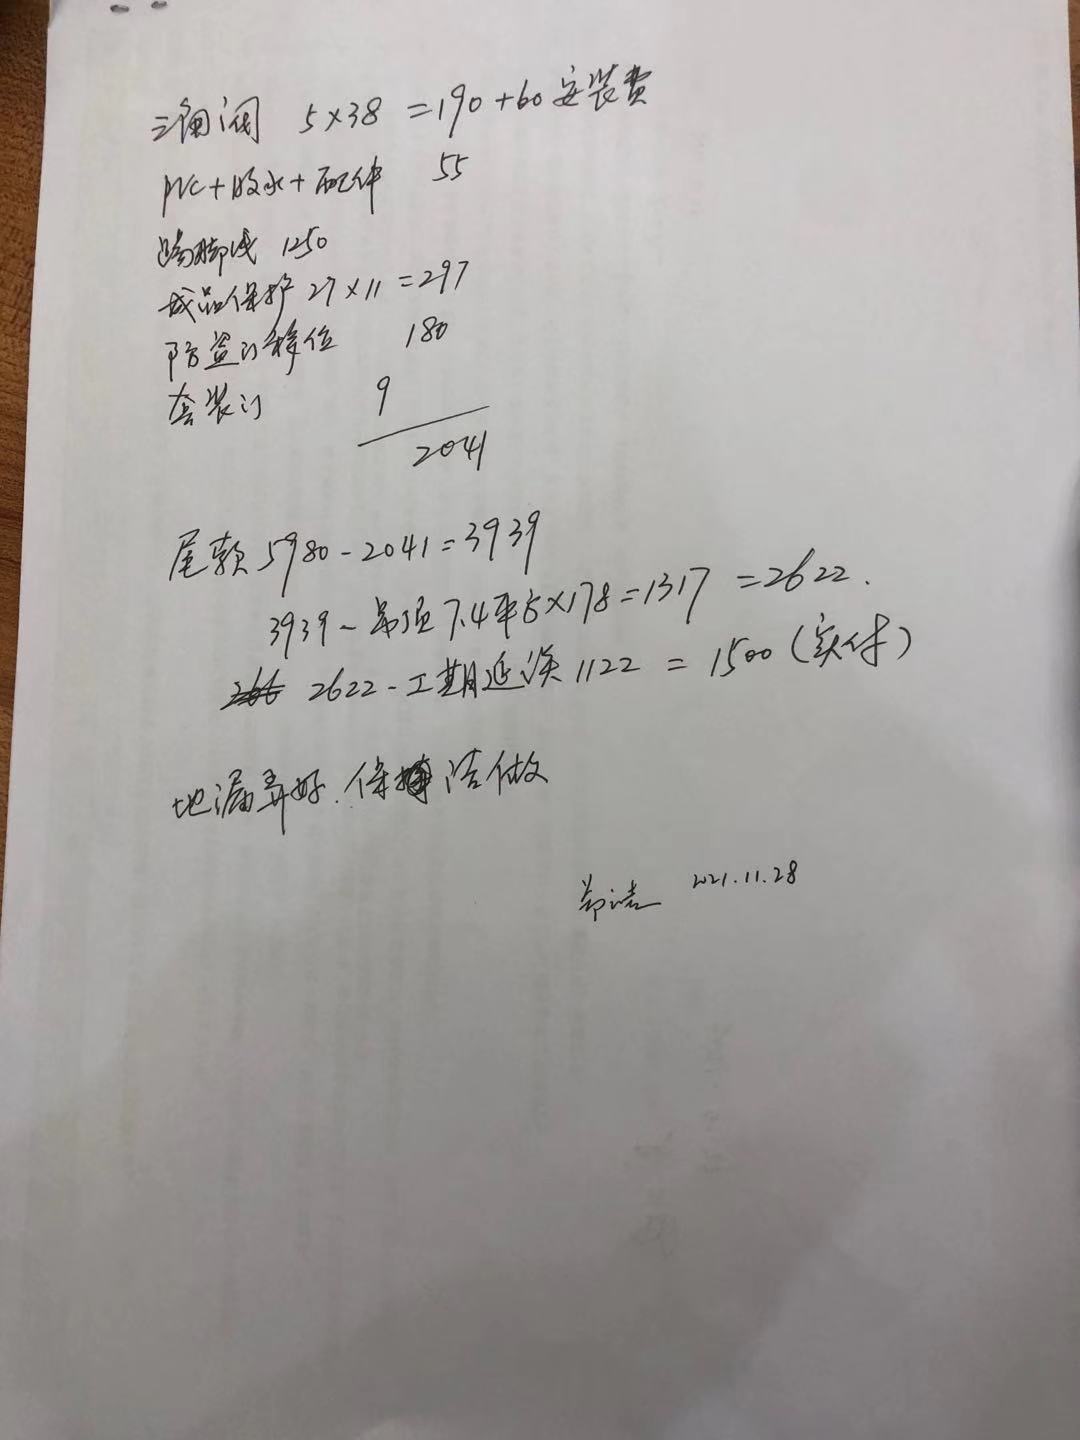 三角阀 5×38 =190+60安装费
PVC+吸水+配件 55
踢脚线 1250
成品保护 27×11=297
防盗门移位 180
套装门 9
2041
尾款 5980-2041=3939
3939-吊顶7.4平方×178=1317 =2622.
2622-工期延误1122 = 1500(实付)
地漏弄好.保洁做
2021.11.28